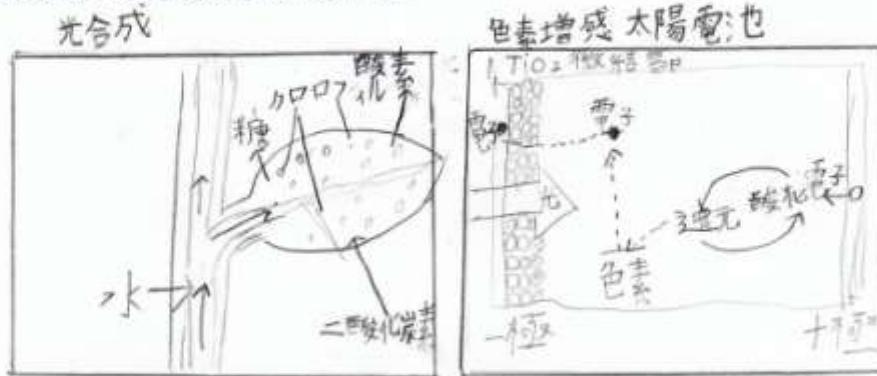 光合成
酸素
クロロフィル
糖
水
二酸化炭素
色素増感太陽電池
TiO₂微結晶
電子
電子
光
電子
還元
酸化
色素
−極
+極